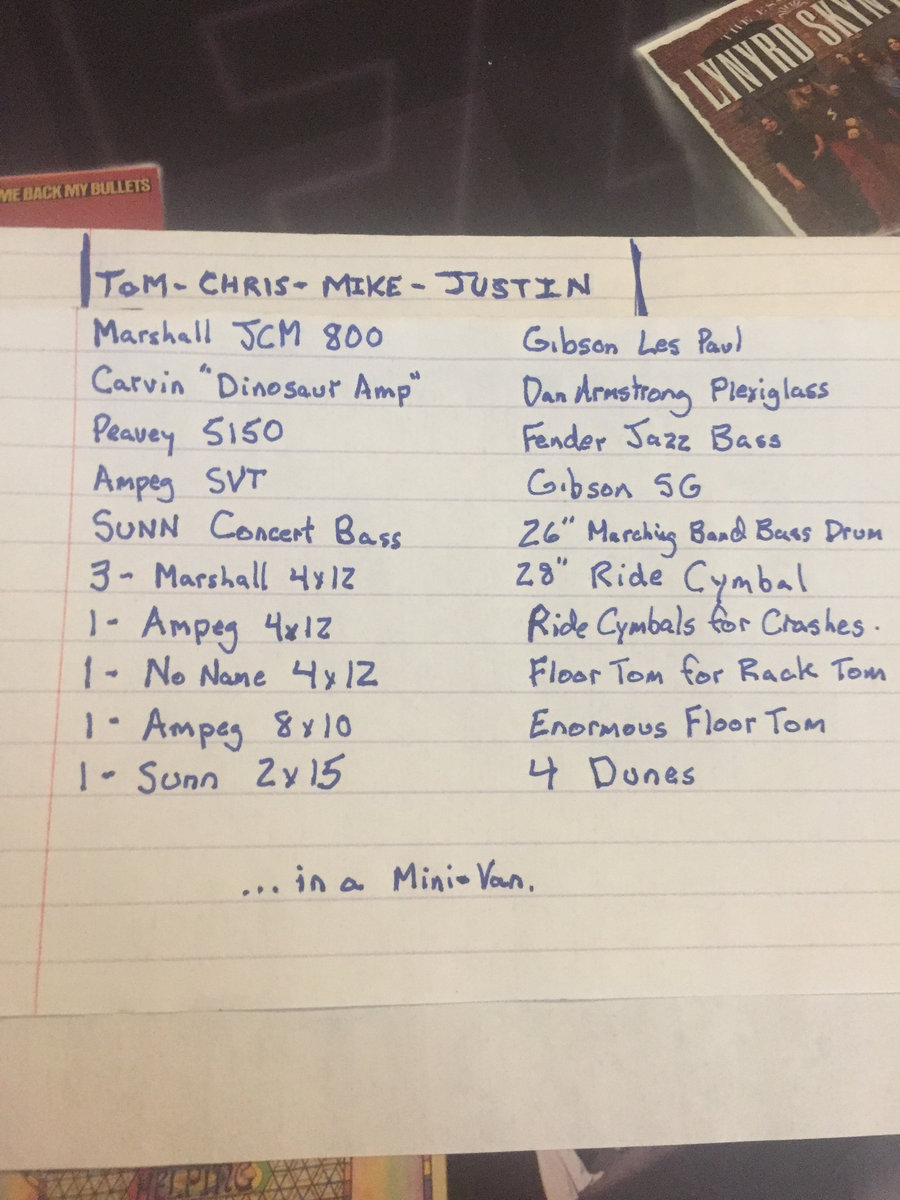 THE ES
LYNYRD SKYN
ME BACK MY BULLETS
TOM - CHRIS - MIKE - JUSTIN
Marshall JCM 800
Carvin "Dinosaur Amp"
Peavey 5150
Ampeg SVT
SUNN Concert Bass
3 - Marshall 4x12
1 - Ampeg 4x12
1 - No Name 4x12
1 - Ampeg 8x10
1 - Sunn 2x15
Gibson Les Paul
Dan Armstrong Plexiglass
Fender Jazz Bass
Gibson SG
26" Marching Band Bass Drum
28" Ride Cymbal
Ride Cymbals for Crashes.
Floor Tom for Rack Tom
Enormous Floor Tom
4 Dunes
... in a Mini-Van.
HELPING